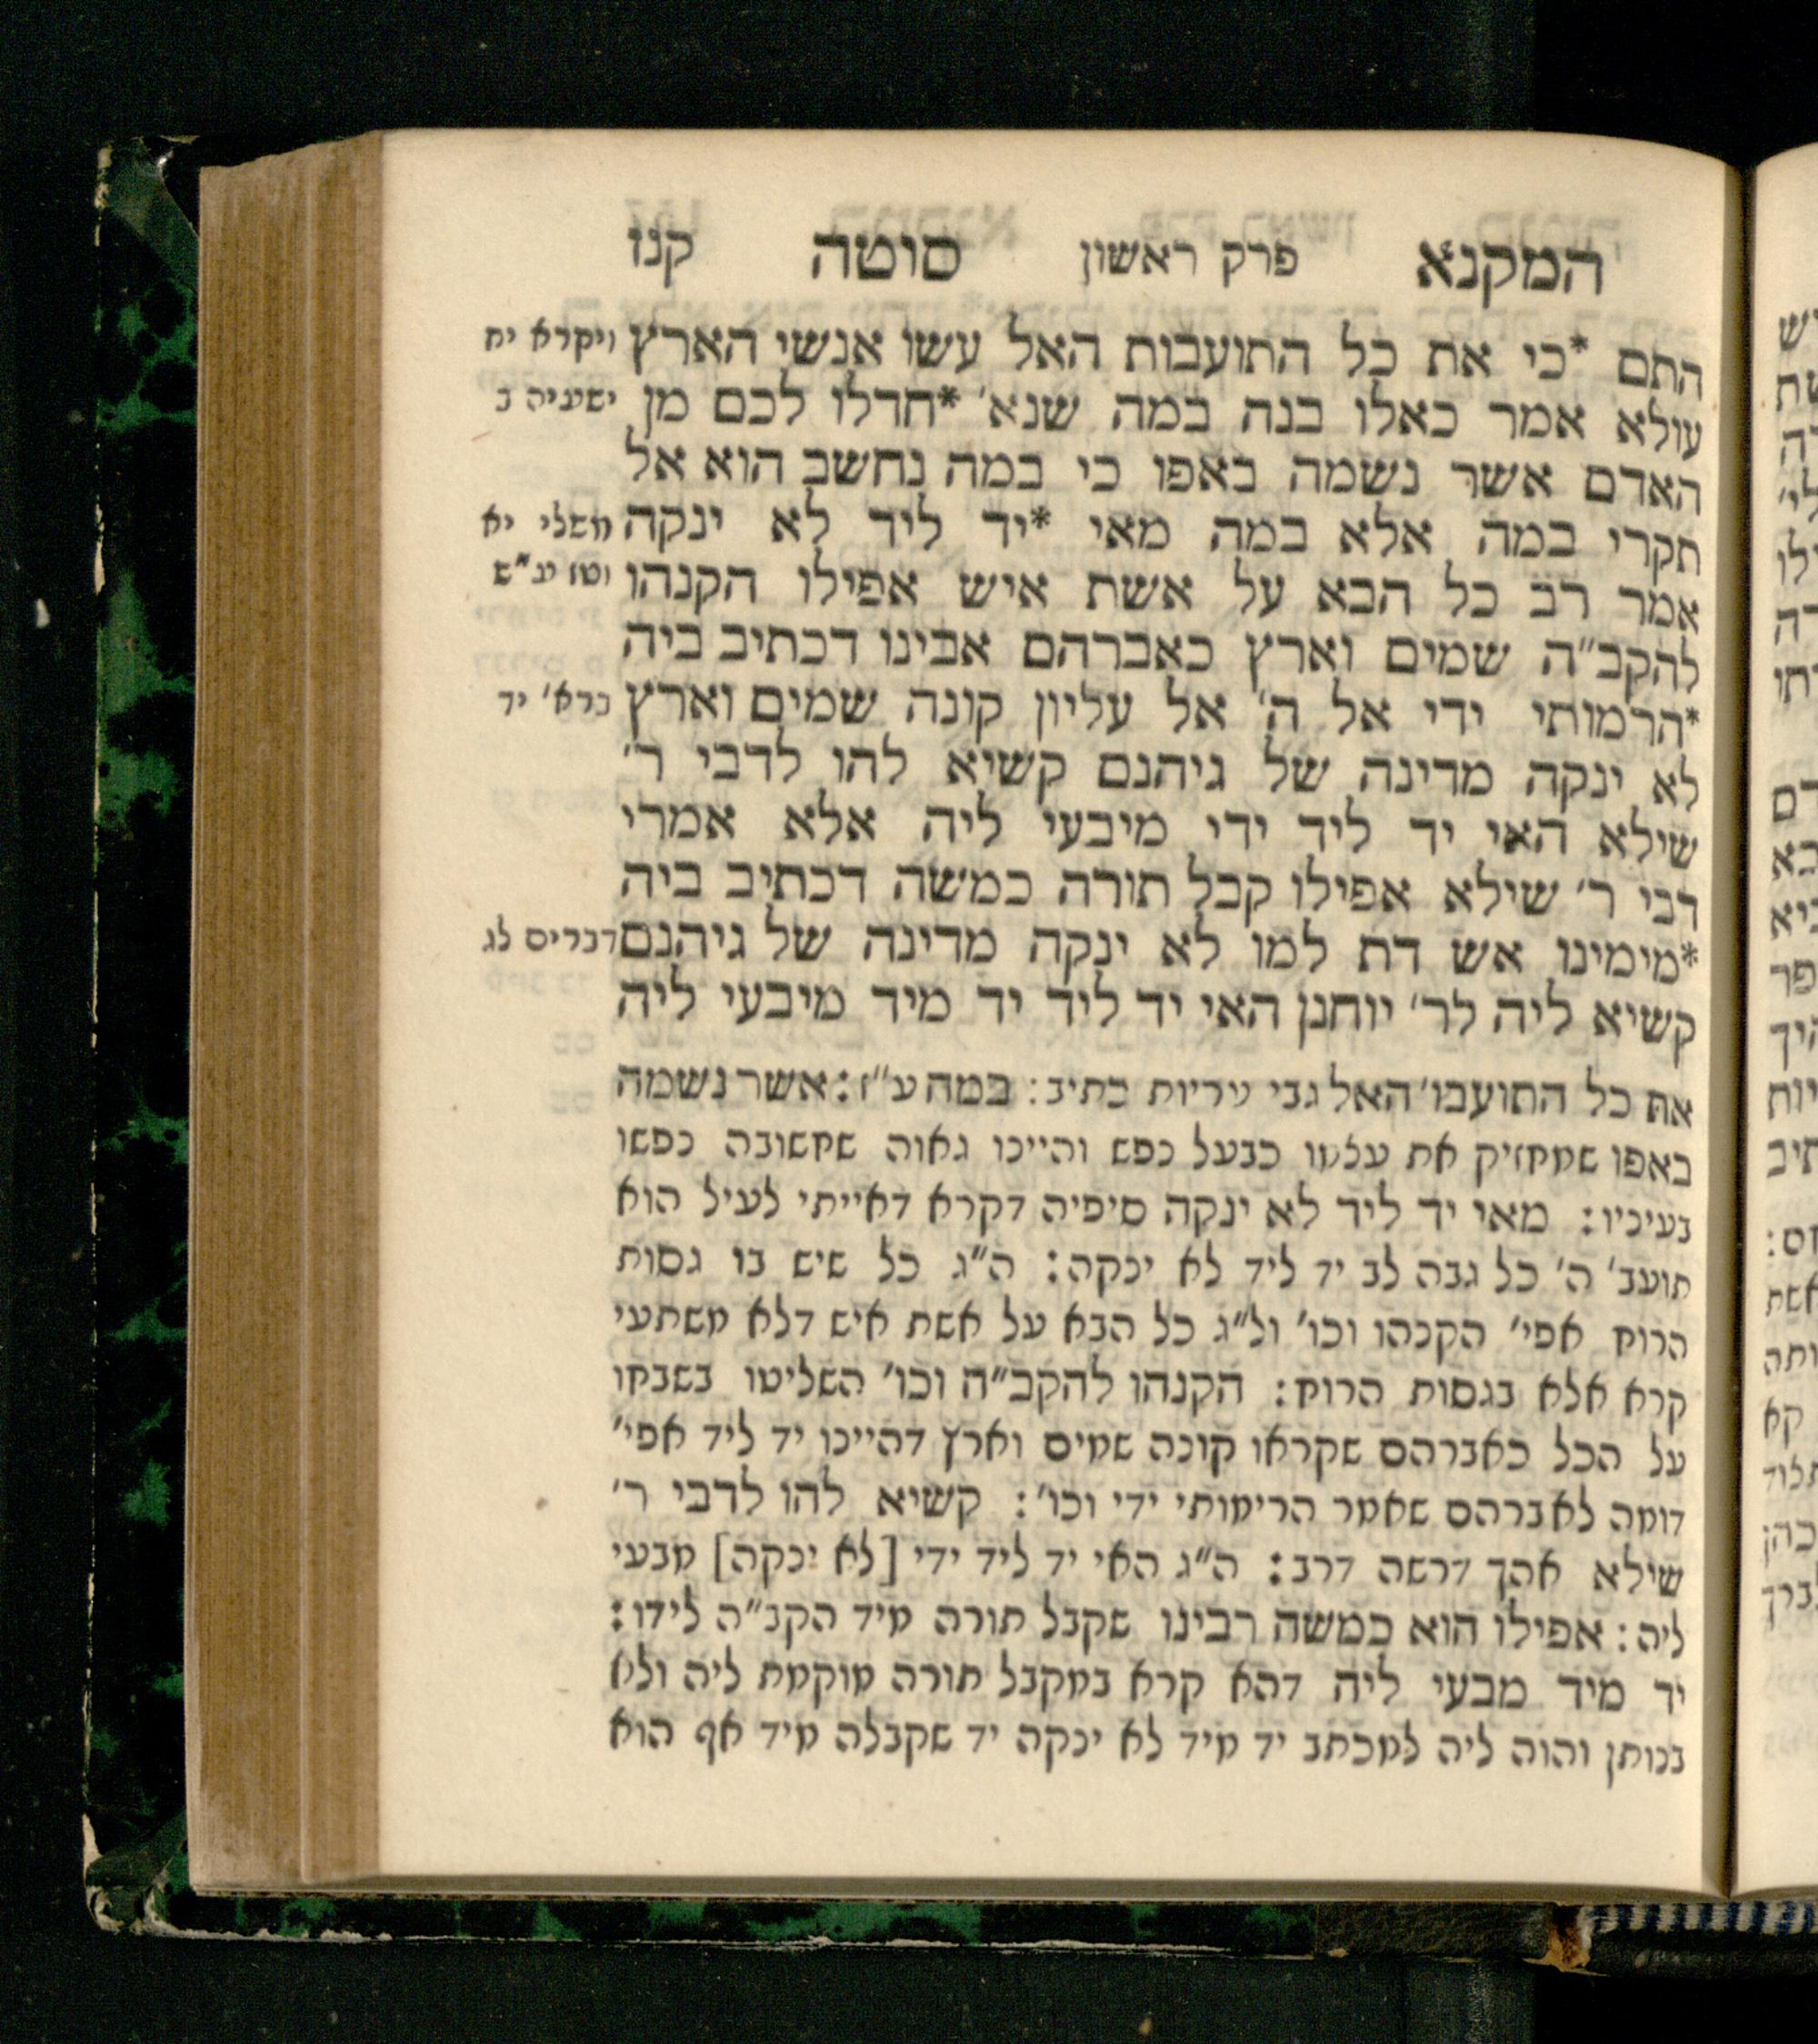 המקנא פרק ראשון סוטה קנו
התם *כי את כל התועבות האל עשו אנשי הארץ ויקרא יח
עולא אמר כאלו בנה במה שנא׳ *חדלו לכם מן ישעיה ב
האדם אשר נשמה באפו כי במה נחשב הוא אל
תקרי במה אלא במה מאי *יד ליד לא ינקה משלי יא
אמר רב כל הבא על אשת איש אפילו הקנהו וטז ע״ש
להקב״ה שמים וארץ כאברהם אבינו דכתיב ביה
*הרמותי ידי אל ה׳ אל עליון קונה שמים וארץ ברא׳ יד
לא ינקה מדינה של גיהנם קשיא להו לדבי ר׳
שילא האי יד ליד ידי מיבעי ליה אלא אמרי
דבי ר׳ שילא אפילו קבל תורה כמשה דכתיב ביה
*מימינו אש דת למו לא ינקה מדינה של גיהנם דברים לג
קשיא ליה לר׳ יוחנן האי יד ליד יד מיד מיבעי ליה
את כל התועבו׳ האל גבי עריות כתיב: במה ע״ז: אשר נשמה
באפו שמחזיק את עצמו כבעל נפש והיינו גאוה שחשובה נפשו
בעיניו: מאי יד ליד לא ינקה סיפיה דקרא דאייתי לעיל הוא
תועב׳ ה׳ כל גבה לב יד ליד לא ינקה: ה״ג כל שיש בו גסות
הרוח אפי׳ הקנהו וכו׳ ול״ג כל הבא על אשת איש דלא משתעי
קרא אלא בגסות הרוח: הקנהו להקב״ה וכו׳ השליטו בשבחו
על הכל כאברהם שקראו קונה שמים וארץ דהיינו יד ליד אפי׳
דומה לאברהם שאמר הרימותי ידי וכו׳: קשיא להו לדבי ר׳
שילא אהך דרשה דרב: ה״ג האי יד ליד ידי [לא ינקה] מבעי
ליה: אפילו הוא כמשה רבינו שקבל תורה מיד הקב״ה לידו:
יד מיד מבעי ליה דהא קרא במקבל תורה מוקמת ליה ולא
בנותן והוה ליה למכתב יד מיד לא ינקה יד שקבלה מיד אף הוא